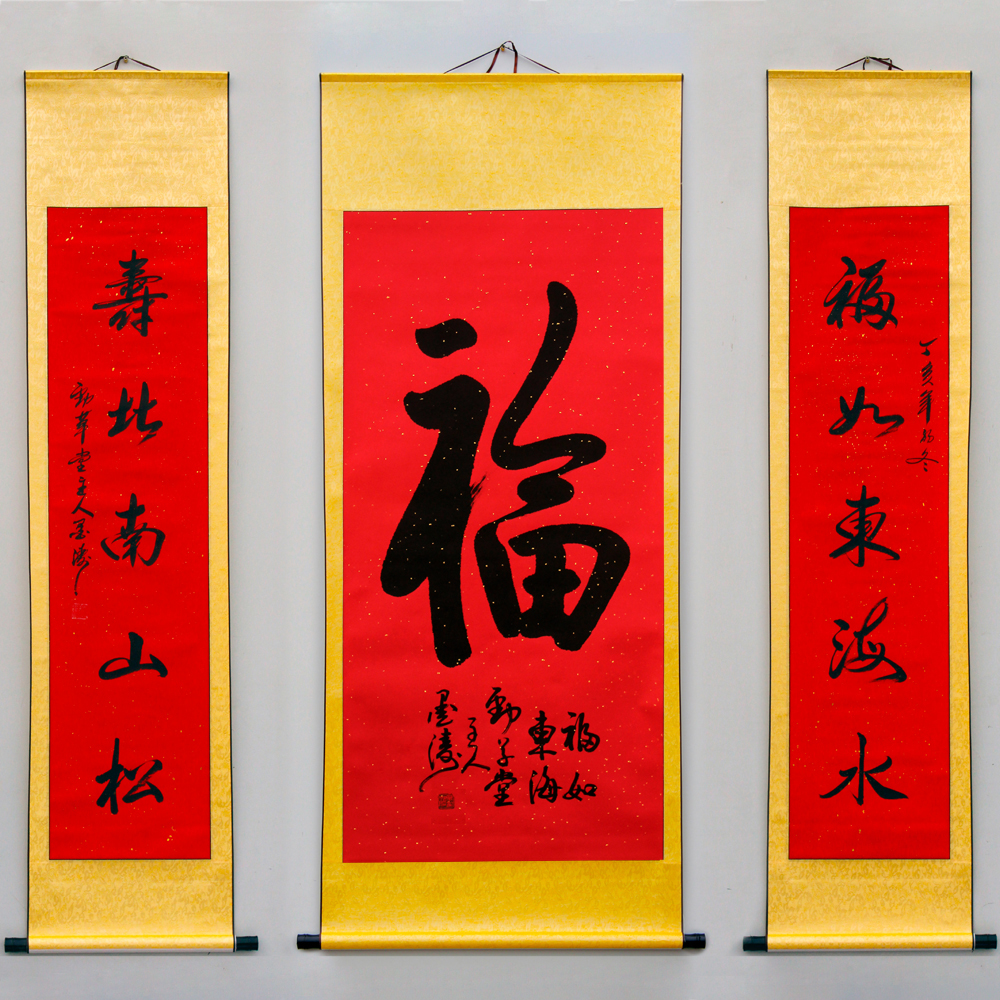 福如東海水
丁亥年初冬
福
福如
東海
勁草堂
主人
墨濤
壽比南山松
勁草堂主人墨濤